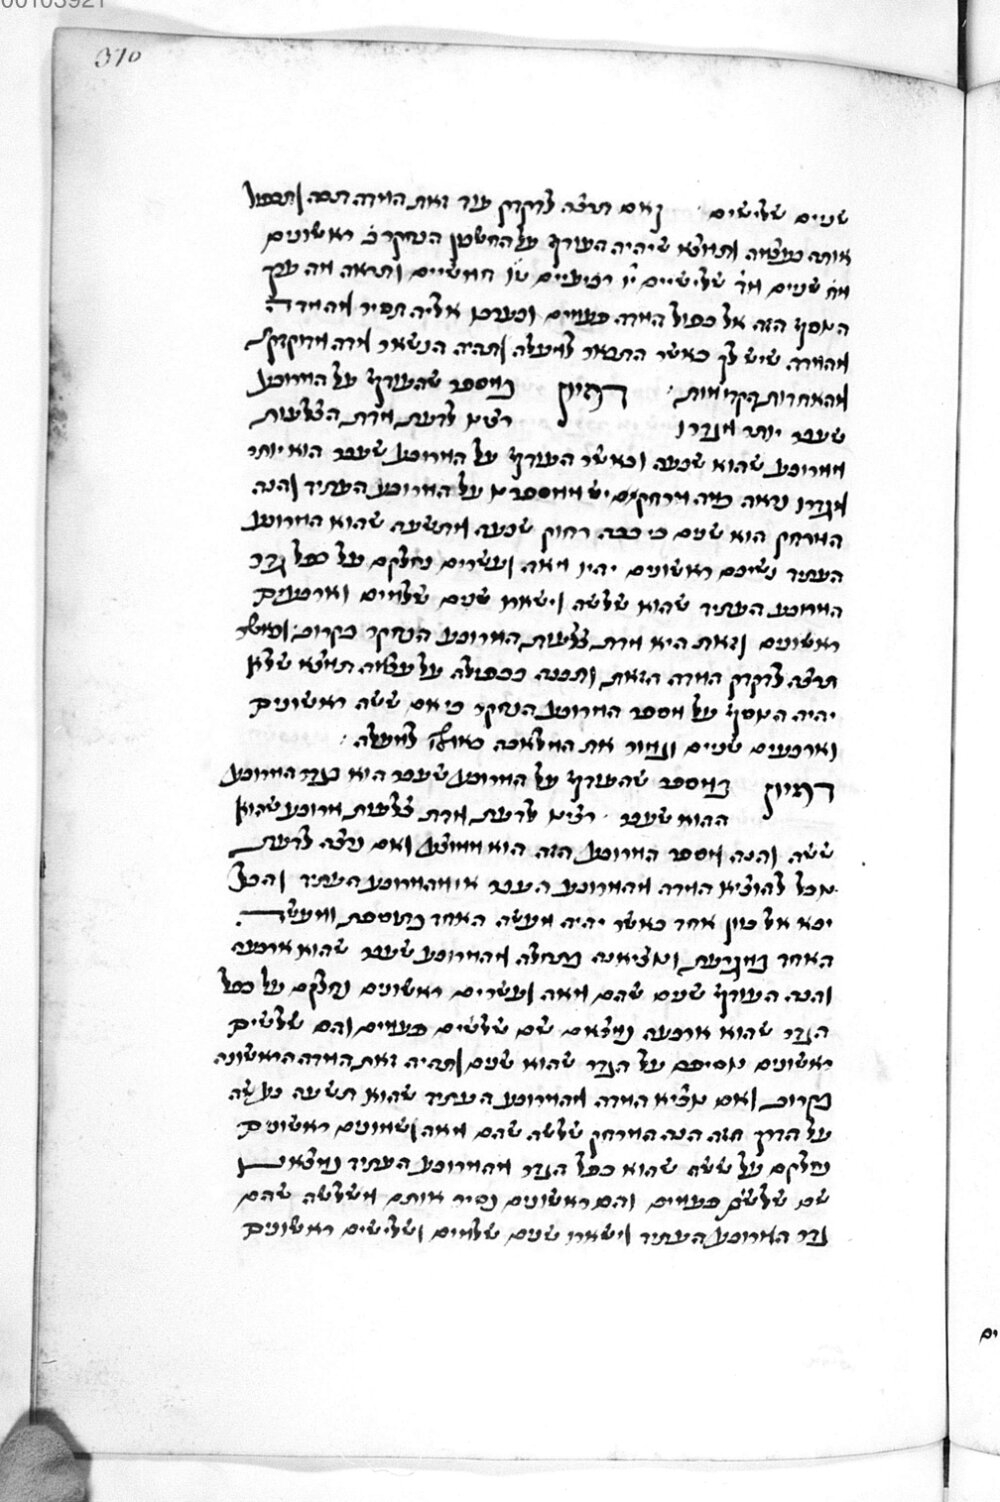 00103921
370
שנים שלישים ׳ ואם תרצה לדקדק עוד זאת המדה תכה
אותה בעצמה ותמצא שיהיה העודף על החשבון הנחקר ראשונים
שנים שלישיים רביעיים חמשיים ותראה מה ערך
המוסף הזה אל כפול המדה פעמים וכערכו אליה תסיר מהמדה
מהמדה שיש לך כאשר התבאר למעלה ותהיה הנשאר מדה מדוקדקת
מהאחרות הקדומות ׳ דמיון במספר שהעודף על המרובע
שעבר יותר מגדרו רצינו לדעת מדת הצלעות
ממרובע שהוא שבעה וכאשר העודף על המרובע שעבר הוא יותר
מגדרו נראה כמה מרחקו ממספרנו על המרובע העתיד והנה
המרחק הוא שנים כי ככה רחוק שבעה מתשעה שהוא המרובע
העתיד נשיבם ראשונים יהיו מאה ועשרים נחלקם על כפל גדר
המרובע העתיד שהוא שלשה וישארו שנים שלמים וארבעים
ראשונים וזאת היא מדת צלעות המרובע הנחקר בקרוב ׳ וכאשר
תרצה לדקדק המדה הזאת ותכנה בכפולה על עצמה תמצא שלא
יהיה המוסף על מספר המרובע הנחקר כי אם ששה ראשונים
וארבעים שניים ונגמור את המלאכה כאולה למעלה ׳
דמיון במספר שהעודף על המרובע שעבר הוא כגדר המרובע
ההוא שעבר ׳ רצינו לדעת מדת צלעות מרובע שהוא
ששה והנה מספר המרובע הזה הוא ממוצע ואם נרצה לדעת
נוכל להוציא המדה מהמרובע העבר או מהמרובע העתיד והכל
יבא אל כוון אחד כאשר יהיה מעשה האחד בתוספת ומעשה
האחד במגרעת ונוציאנה בתחלה מהמרובע שעבר שהוא ארבעה
והנה העודף שנים שהם מאה ועשרים ראשונים נחלקם על כפל
הגדר שהוא ארבעה נמצאם שם שלשים פעמים והם שלשים
ראשונים נוסיפם על הגדר שהוא שנים ותהיה זאת המדה הראשונה
בקרוב ואם נוציא המדה מהמרובע העתיד שהוא תשעה נעשה
על הדרך הזה הנה המרחק שלשה שהם מאה ושמונים ראשונים
נחלקם על ששה שהוא כפל הגדר מהמרובע העתיד נמצאנו
שם שלשים פעמים והם ראשונים נסיר אותם משלשה שהם
גדר המרובע העתיד וישארו שנים שלמים ושלישים ראשונים
ים